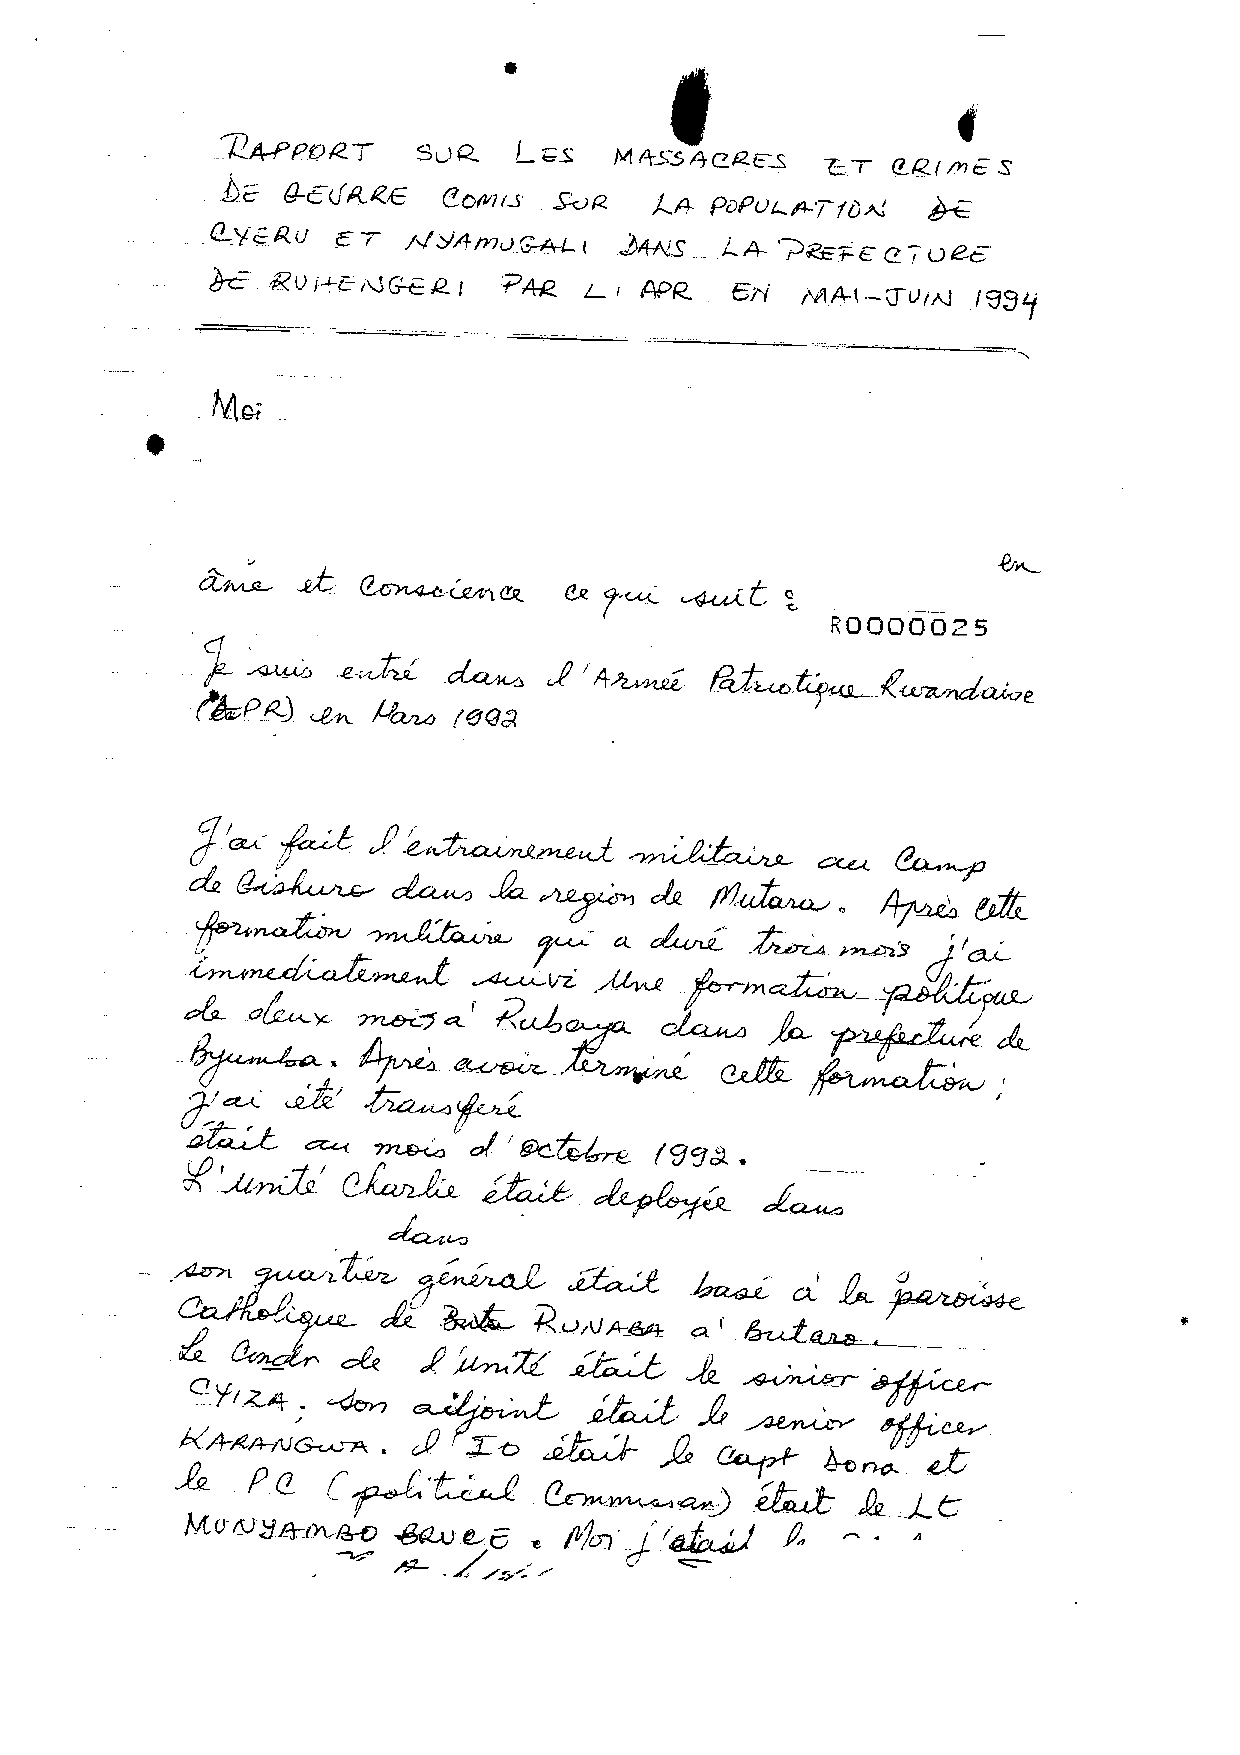 RAPPORT SUR LES MASSACRES ET CRIMES
DE GEURRE COMIS SUR LA POPULATION DE
CYERU ET NYAMUGALI DANS LA PREFECTURE
DE RUHENGERI PAR L'APR EN MAI-JUIN 1994
Moi
en
âme et conscience ce qui suit :
R0000025
Je suis entré dans l'Armée Patriotique Rwandaise
(APR) en Mars 1992
J'ai fait l'entrainement militaire au Camp
de Gishuro dans la region de Mutara. Après cette
formation militaire qui a duré trois mois j'ai
immediatement suivi une formation politique
de deux mois à Rubaya dans la prefecture de
Byumba. Après avoir terminé cette formation ;
j'ai été transferé
était au mois d'octobre 1992.
L'unité Charlie était deployée dans
dans
son quartier général était basé à la paroisse
Catholique de RUNABA à Butaro.
Le Comdr de l'unité était le sinior officer
CYIZA, son adjoint était le senior officer
KARANGWA. l'IO était le Capt Dona et
le PC (political Commissar) était le Lt
MUNYAMBO BRUCE. Moi j'étais